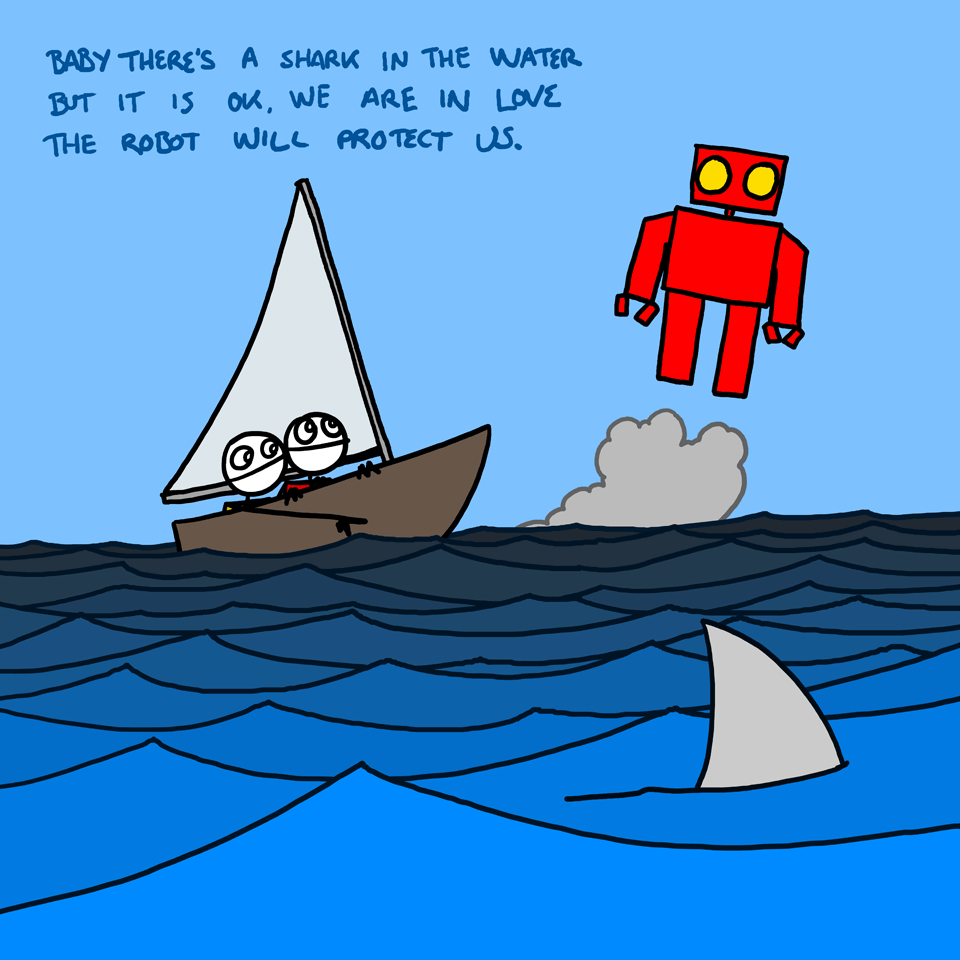 BABY THERE'S A SHARK IN THE WATER
BUT IT IS OK, WE ARE IN LOVE
THE ROBOT WILL PROTECT US.